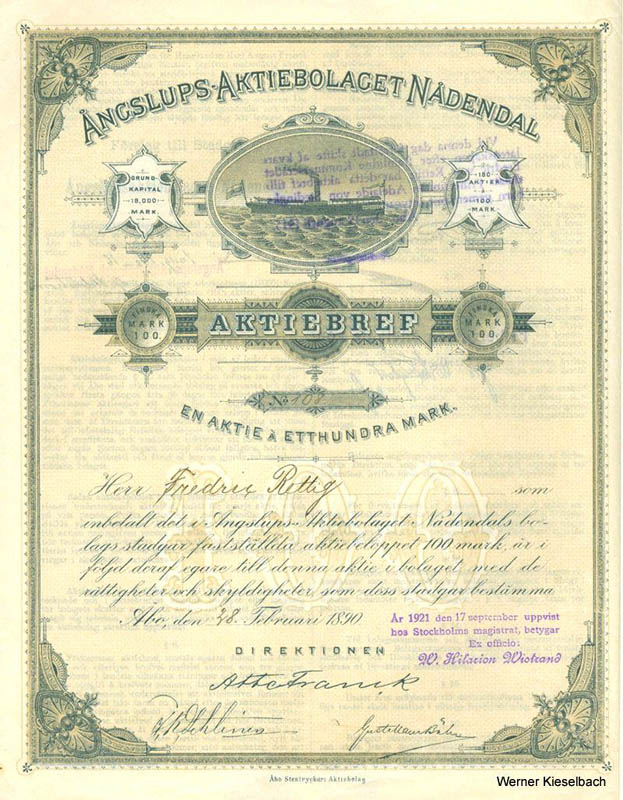 ÅNGSLUPS-AKTIEBOLAGET NÅDENDAL
GRUND-
KAPITAL
18,000
MARK.
180
AKTIER
À
100
MARK.
FINSKA
MARK
100.
AKTIEBREF
FINSKA
MARK
100.
No 108
EN AKTIE À ETTHUNDRA MARK.
Herr Fredric Rettig som
inbetalt det i Ångslups-Aktiebolaget Nådendals bo-
lags stadgar fastställda aktiebeloppet 100 mark, är i
följd deraf egare till denna aktie i bolaget med de
rättigheter och skyldigheter, som dess stadgar bestämma
Åbo, den 28. Februari 1890
År 1921 den 17 september uppvist
hos Stockholms magistrat, betygar
Ex officio:
W. Hilarion Wistrand
DIREKTIONEN
Åbo Stentryckeri Aktiebolag
Werner Kieselbach